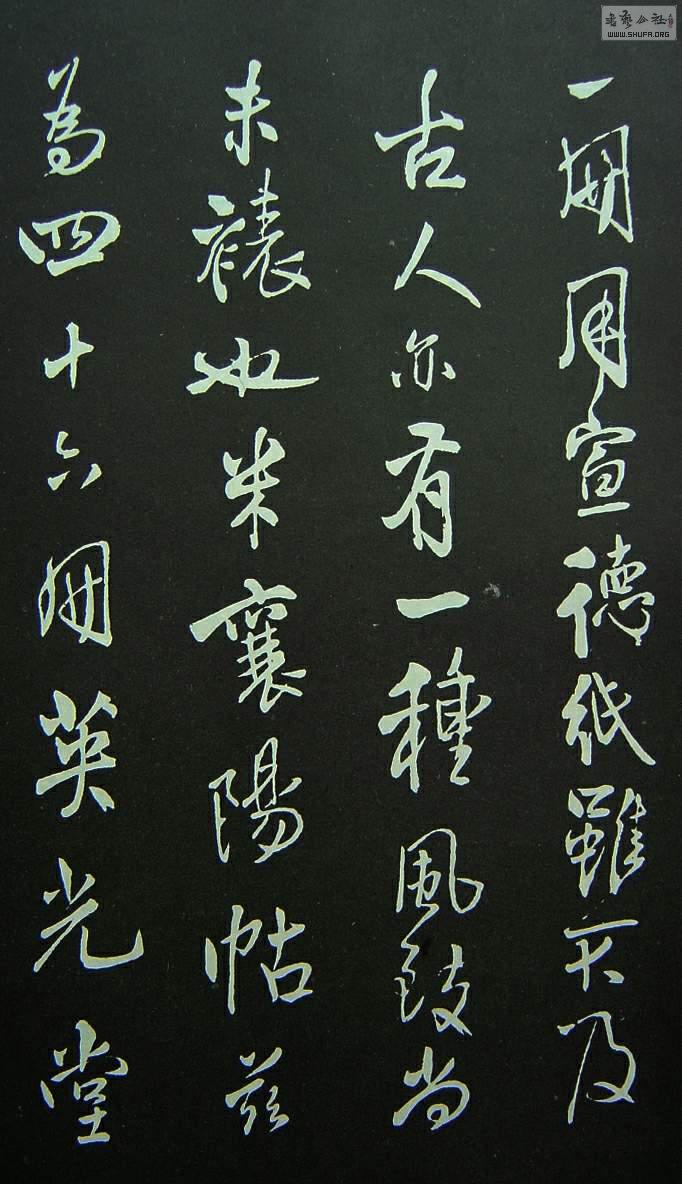 一冊用宣德紙雖不及
古人亦有一種風致尚
未裱也米襄陽帖茲
為四十六冊英光堂
書藝公社
WWW.SHUFA.ORG